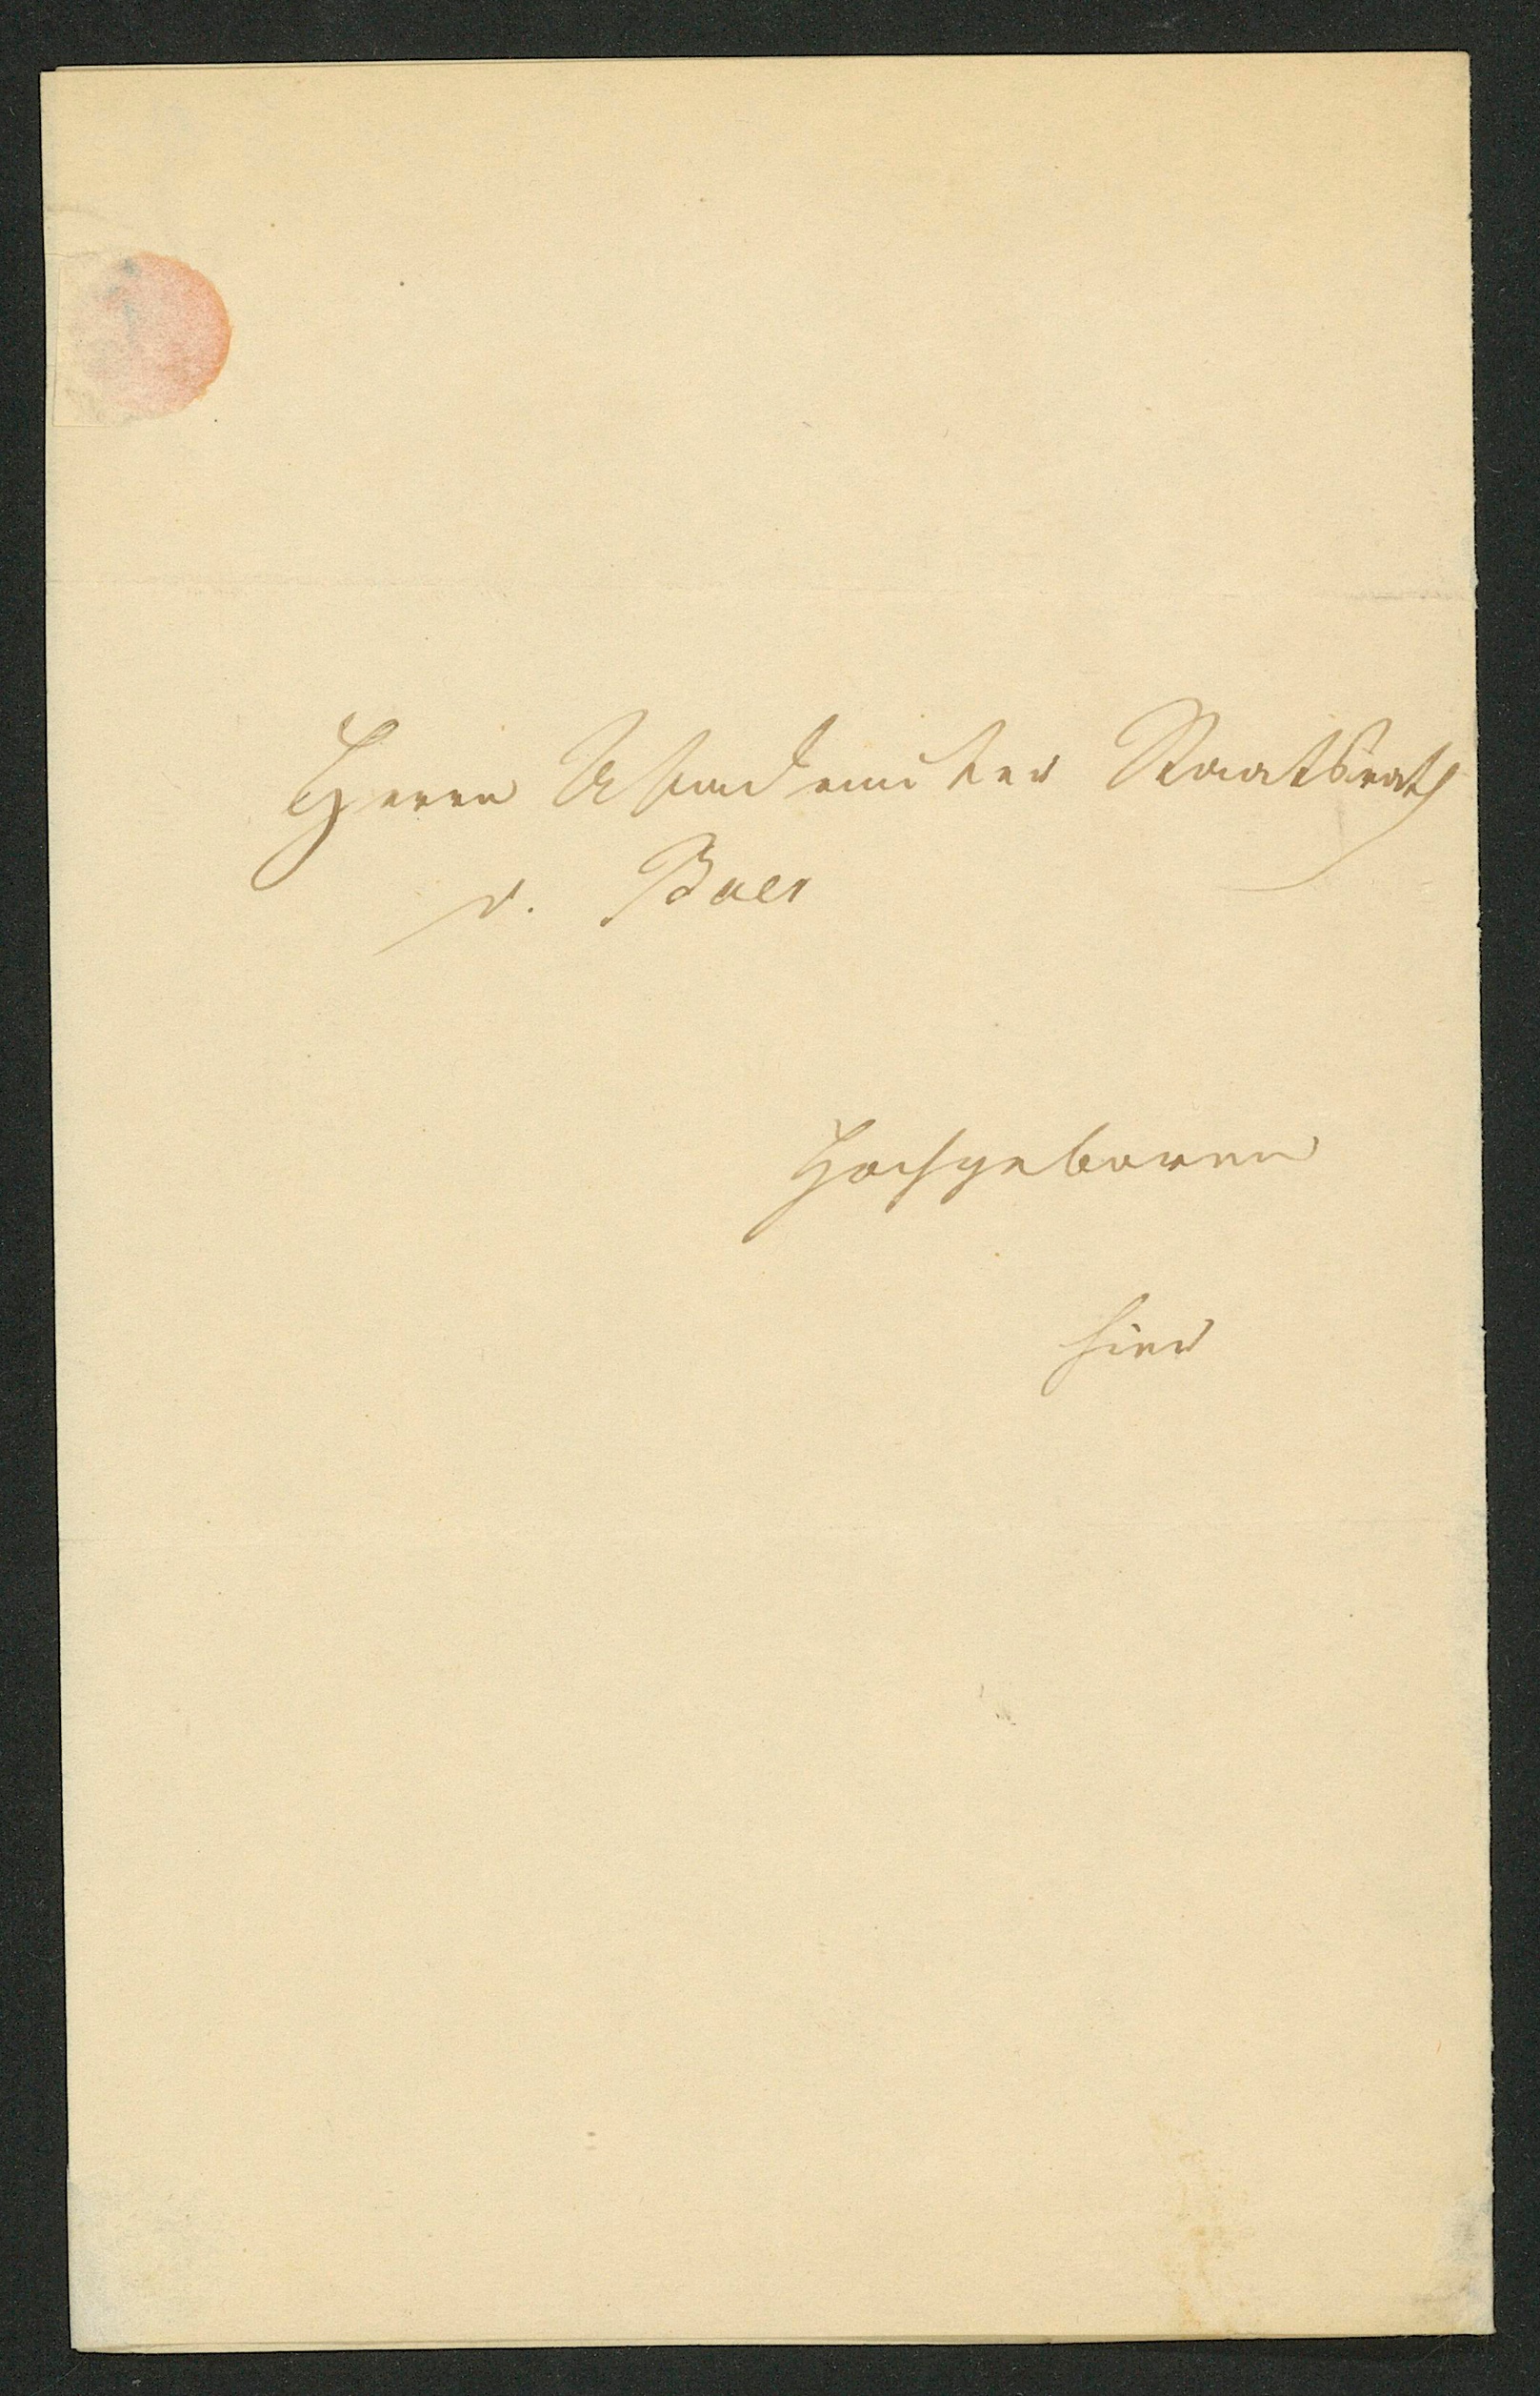 Herrn Akademiker Staatsrath
v. Baer
Hochgeboren
hier